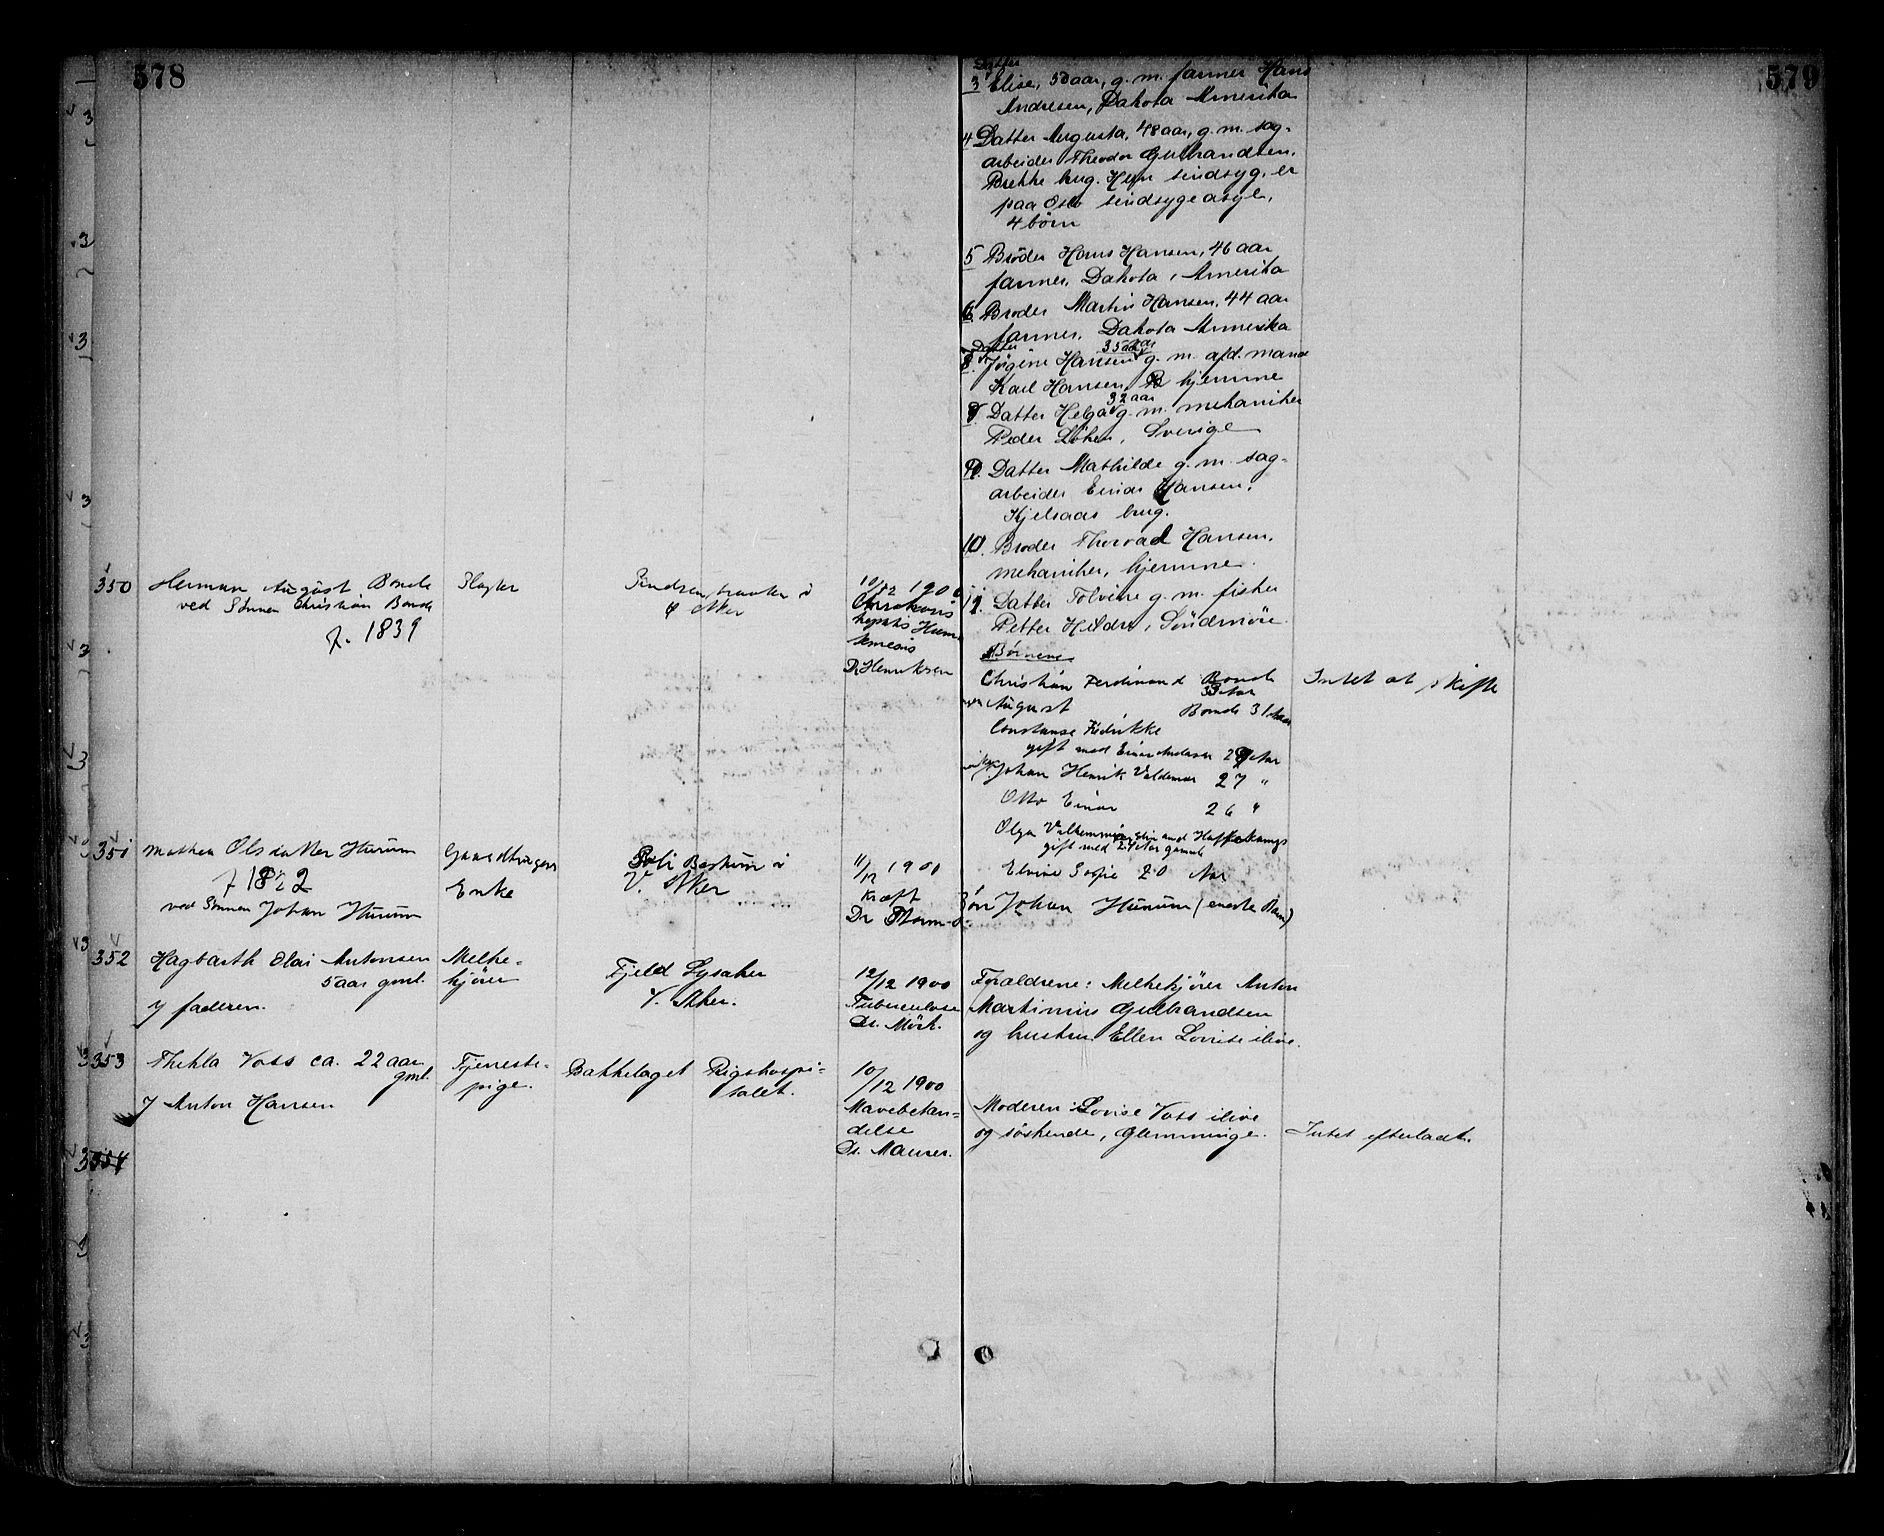 578
579
Datter
3 Elise, 50 aar, g. m. farmer Hans
Andresen, Dakota Amerika
4 Datter Augusta, 48 aar, g. m. sag-
arbeider Theodor Gulbrandsen,
Brekke brug. Hun sindsyg, er
paa Oslo sindsygeasyl,
4 børn
5 Broder Hans Hansen, 46 aar
farmer, Dakota, Amerika
6. Broder Martin Hansen, 44 aar
farmer, Dakota Amerika
Datter 35 aar
8. Jørgine Hansen g. m. afd. mand
Karl Hansen, hjemme
32 aar
Datter Helga g. m. mekaniker
Peder Løken, Sverige
Datter Mathilde g. m. sag-
arbeider Einar Hansen,
Kjelsaas brug.
10. Broder Thorvad Hansen,
mekaniker, hjemme.
Datter Tolvine g. m. fisker
Petter Heldre, Søndmøre.
350 Herman August Bonde
ved Sønnen Christian Bonde
f. 1839
Slagter
V Aker
10/12 1900
hepatis
Dr Henriksen
Børnene
Christian Ferdinand Bonde
33 Aar
August Bonde 31 Aar
Constanse Fredrikke
gift med Einar Andersen Aar
Johan Henrik Valdemar 27 "
Otto Einar 26 "
Olga
gift med 24 Aar gammel
Elvine Sofie 20 Aar
Intet at skifte
351 Mathea Olsdatter Hurum
f 1822
ved Sønnen Johan Hurum
Gaardbrugers
Enke
Bærum i
V. Aker
11/12 1900
Kræft
Dr
Søn Johan Hurum (eneste Barn)
352 Hagbarth Olai Antonsen
5 aar gml.
v faderen.
Melke-
kjører
Fjeld Lysaker
V. Aker.
12/12 1900
Tuberculose
Dr. Mørk.
Forældrene: Melkekjører Anton
Martinius Gulbrandsen
og hustru Ellen Lovise ilive.
353 Thekla Voss ca. 22 aar
gml.
v Anton Hansen
Tjeneste-
pige.
Bakkelaget Rigshospi-
talet.
10/12 1900
Mavebetæn-
delse
Dr. Mauser.
Moderen: Lovise Voss ilive
og søskende, Glemminge.
Intet efterladt.
354